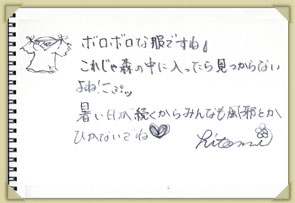 ボロボロな服ですね♩
これじゃ森の中に入ったら見つからない
よね!
暑い日が続くからみんなも風邪とか
ひかないでね♥
hitomi